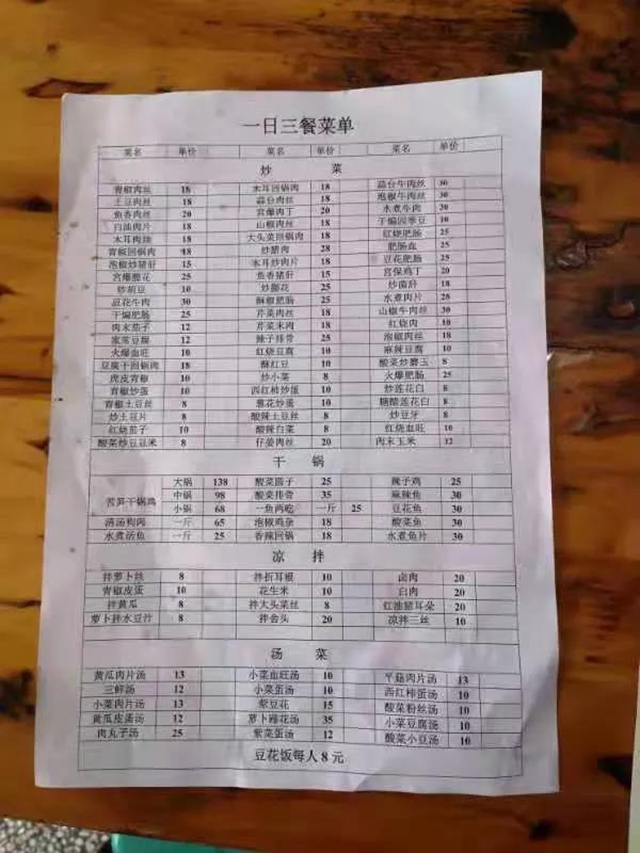 一日三餐菜单
菜名 单价 菜名 单价 菜名 单价
炒 菜
青椒肉丝 18 木耳回锅肉 18 蒜台牛肉丝 30
土豆肉丝 18 蒜台肉丝 18 泡椒牛肉丝 30
鱼香肉丝 20 宫爆肉丁 20 水煮牛肉 30
白油肉片 18 山椒肉丝 18 干煸四季豆 10
木耳肉丝 18 大头菜回锅肉 18 红烧肥肠 25
青椒回锅肉 18 炒腊肉 28 肥肠血 25
泡椒炒猪肝 15 木耳炒肉片 18 豆花肥肠 25
宫爆腰花 25 鱼香猪肝 15 宫保鸡丁 20
炒胡豆 10 炒腰花 25 炒菌肝 18
豆花牛肉 30 酥椒肥肠 25 水煮肉片 25
干煸肥肠 25 芹菜肉丝 18 山椒牛肉丝 30
肉末茄子 12 芹菜末肉 18 红烧肉 10
家常豆腐 12 辣子排骨 25 泡椒肉丝 18
火爆血旺 10 红烧豆腐 10 麻辣豆腐 10
豆腐干回锅肉 18 酥红豆 10 酸菜炒磨玉 8
虎皮青椒 10 炒小菜 8 火爆肥肠 25
青椒炒蛋 10 西红柿炒蛋 10 炒莲花白 8
青椒土豆丝 8 葱花炒蛋 10 糖醋莲花白 8
炒土豆片 8 酸辣土豆丝 8 炒豆牙 8
红烧茄子 10 酸辣白菜 8 红烧血旺 10
酸菜炒豆米 8 仔姜肉丝 20 肉末玉米 12
干 锅
苦笋干锅鸡 大锅 138 酸菜圆子 25 辣子鸡 25
中锅 98 酸菜排骨 35 麻辣鱼 30
小锅 68 一鱼两吃 一斤 25 豆花鱼 30
清汤狗肉 一斤 65 泡椒鸡杂 18 酸菜鱼 30
水煮活鱼 一斤 25 香辣回锅 18 水煮鱼片 30
凉 拌
拌萝卜丝 8 拌折耳根 10 卤肉 20
青椒皮蛋 10 花生米 10 白肉 20
拌黄瓜 8 拌大头菜丝 8 红油猪耳朵 20
萝卜拌水豆汁 8 拌舍头 20 凉拌三丝 8
汤 菜
黄瓜肉片汤 13 小菜血旺汤 10 平菇肉片汤 13
三鲜汤 12 小菜蛋汤 10 西红柿蛋汤 10
小菜肉片汤 13 荤豆花 15 酸菜粉丝汤 10
黄瓜皮蛋汤 12 萝卜蹄花汤 35 小菜豆腐汤 10
肉丸子汤 25 紫菜蛋汤 12 酸菜小豆汤 10
豆花饭每人 8 元